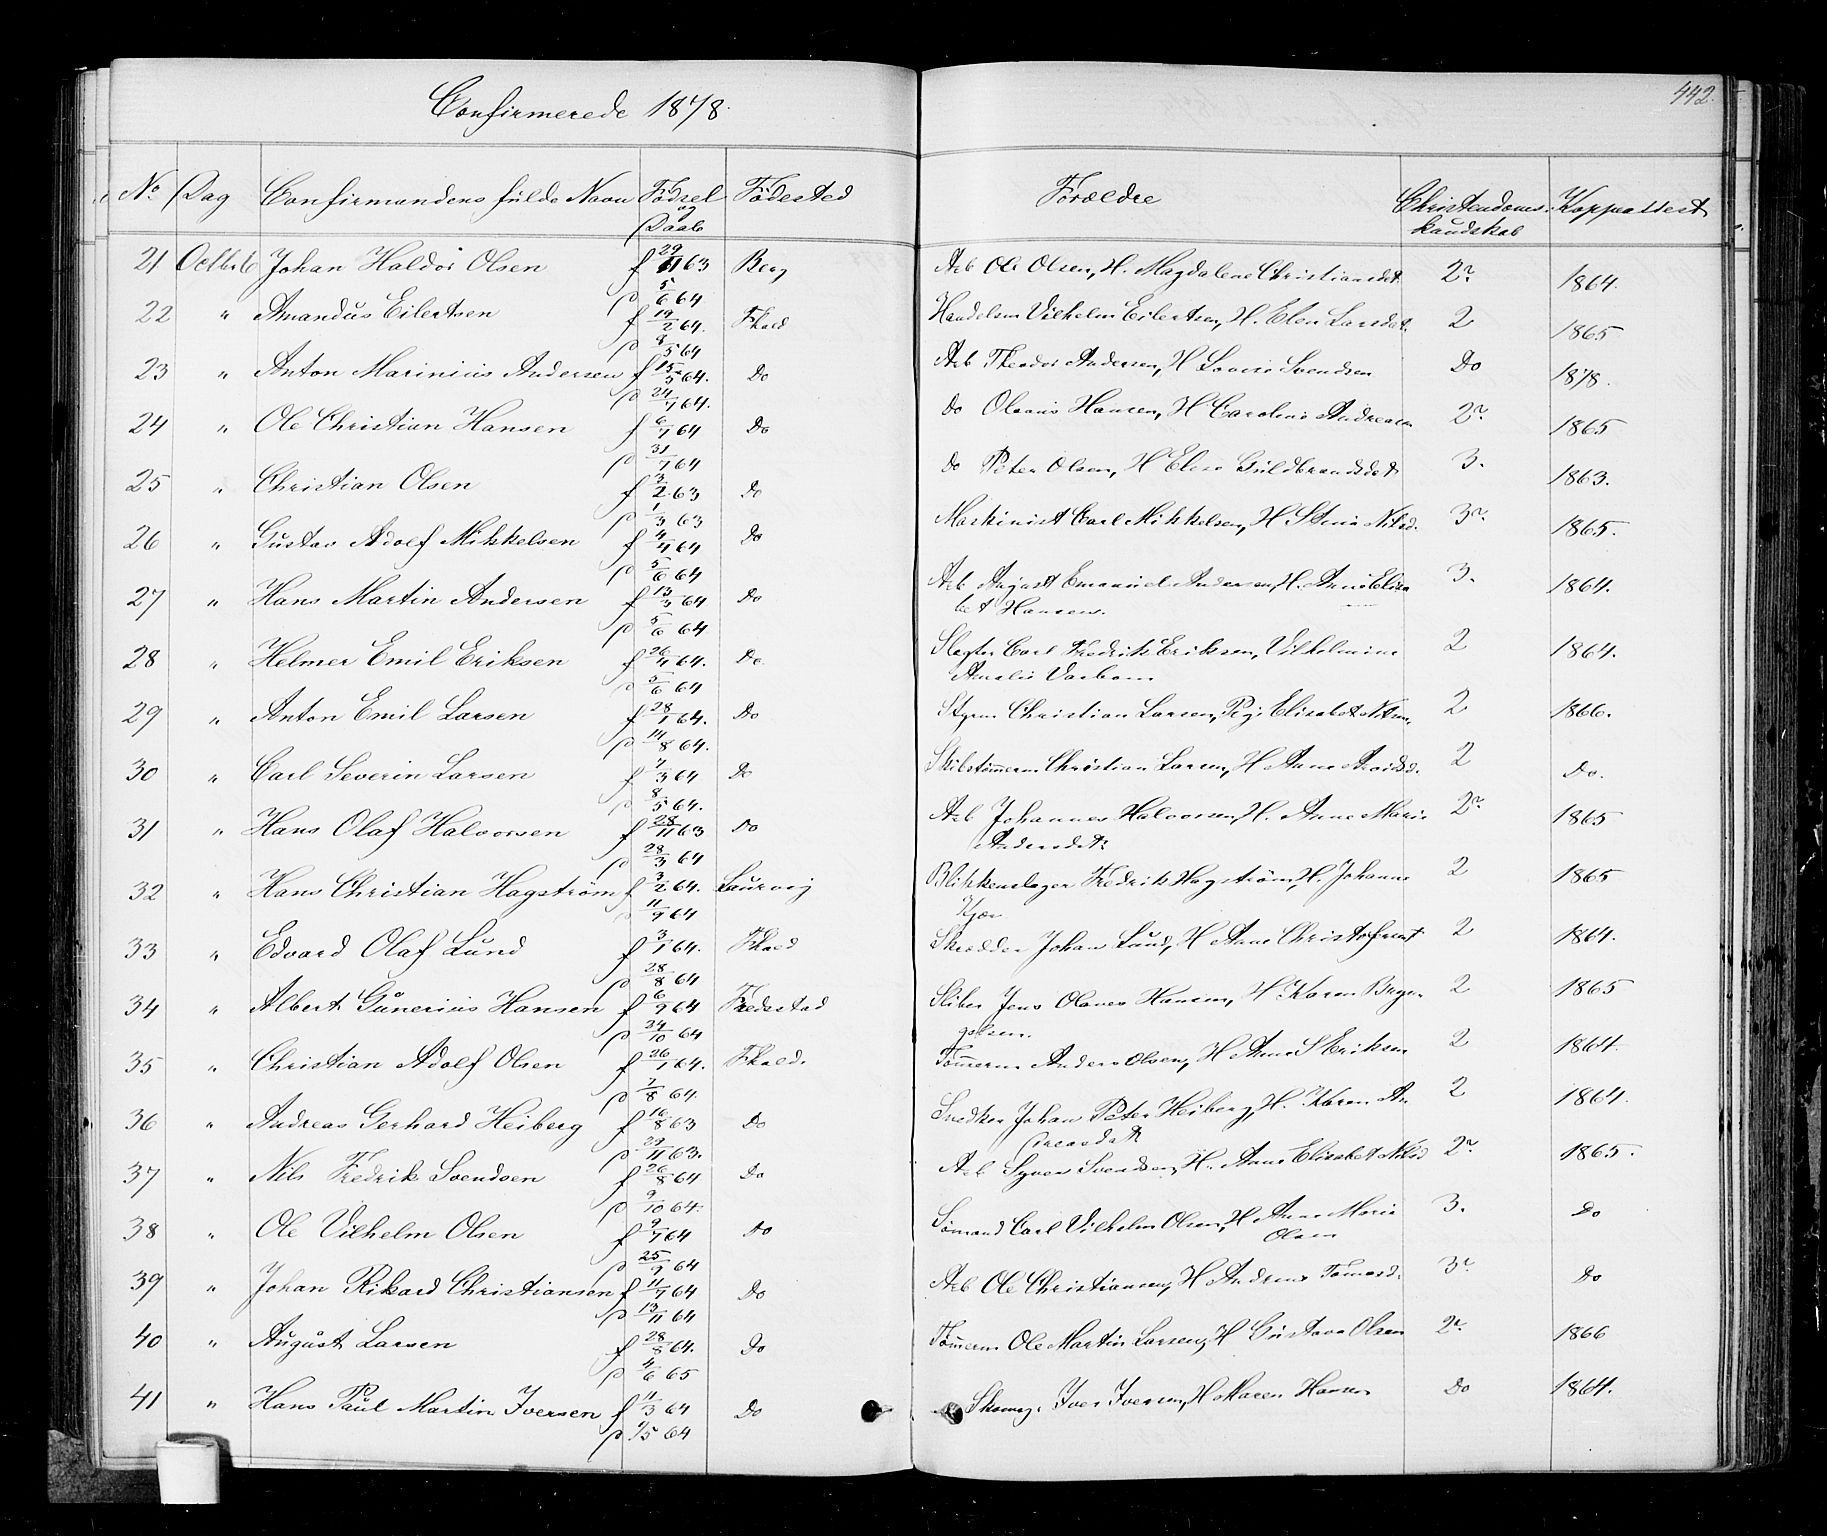 442.
Confirmerede 1878.
No Dag Confirmandens fulde Navn Fødsel og Daab Fødested Forældre Christendomskundskab Koppeattest
21 Octbr 6 Johan Haldor Olsen f 29/11 63 Berg Arb Ole Olsen, H. Magdalene Christiansdt. 2r 1864.
d 5/6 64
22 " Amandus Eilertsen f 19/2 64. Fhald Handelsm Vilhelm Eilertsen, H. Elen Larsdt. 2 1865
d 8/5 64
23 " Anton Marinius Andersen f 15/3 64. Do Arb Theodor Andersen, H Lovise Svendsen Do 1878.
d 24/7 64.
24 " Ole Christian Hansen f 6/7 64 Do do Olaus Hansen, H Caroline Andreasen 2r 1865
d 31/7 64
25 " Christian Olsen f 3/2 63 Do do Peter Olsen, H Elise Guldbrandsdt 3. 1863.
d 1/3 63
26 " Gustav Adolf Mikkelsen f 4/4 64 Do Maskinist Carl Mikkelsen, H Stina Nilsd. 3r 1865.
d 5/6 64
27 " Hans Martin Andersen f 13/3 64 Do Arb August Emanuel Andersen, H. Anne Elisa 3. 1864.
d 5/6 64 bet Hansen.
28 " Helmer Emil Eriksen f 26/4 64. Do Slagter Carl Fredrik Eriksen, Vilhelmine 2 1864.
d 5/6 64 Amalie
29 " Anton Emil Larsen f 28/1 64. Do Styrm Christian Larsen, Pige Elisabet 2 1866.
d 14/8 64.
30 " Carl Severin Larsen f 7/3 64 Do Skibstømerm Christian Larsen, H Anne 2 Do.
d 8/5 64.
31 " Hans Olaf Halvorsen f 28/11 63 Do Arb Johannes Halvorsen, H. Anne Marie 2r 1865
d 28/3 64 Andersdt.
32 " Hans Christian Hagstrøm f 3/2 64. Laurvig Blikkenslager Fredrik Hagstrøm, H. Johanne 2 1865
d 11/9 64 Kjær
33 " Edvard Olaf Lund f 3/1 64. Fhald Skrædder Johan Lund, H Anne Christofersdt 2 1864.
d 28/8 64
34 " Albert Gunerius Hansen f 6/9 64 Fredestad Sliber Jens Olaves Hansen, H Karen 2 1865
d 24/10 64
35 " Christian Adolf Olsen f 26/1 64. Fhald. Tømerm Anders Olsen, H Anne S Eriksen 2 1864.
d 7/8 64.
36 " Andreas Gerhard Heiberg f 16/8 63 Do Snedker Johan Peter Heiberg, H. Karen An 2 1864.
d 29/11 63. dreasdt
37 " Nils Fredrik Svendsen f 26/8 64 Do Arb Syver Svendsen, H. Anne Elisabet Nilsd 2r 1865.
d 9/10 64.
38 " Ole Vilhelm Olsen f 9/7 64 Do Sømand Carl Vilhelm Olsen, H Anne Marie 3. Do
d 25/9 64 Olsen
39 " Johan Rikard Christiansen f 11/7 64 Do Arb Ole Christiansen, H Andrine 3r Do
d 13/11 64
40 " August Larsen f 28/8 64. Do Tømerm Ole Martin Larsen, H Gustava Olsen 2r 1866
d 4/6 65
41 " Hans Paul Martin Iversen f 11/3 64 Do Skomag. Iver Iversen, H Maren Hansen Do 1864.
d 1/5 64